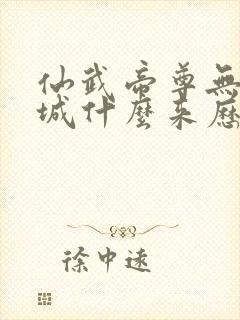 仙武帝尊無
城什麼來歷
徐中遠